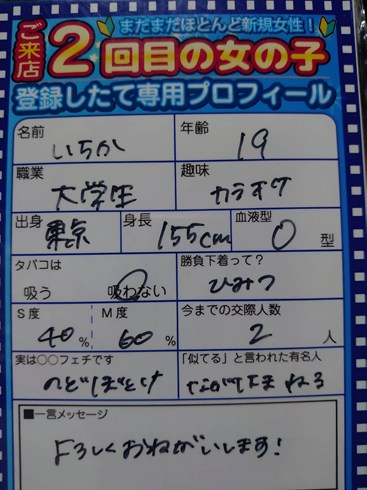 まだまだほとんど新規女性！
ご来店2回目の女の子
登録したて専用プロフィール
名前 いちか 年齢 19
職業 大学生 趣味 カラオケ
出身 東京 身長 155cm 血液型 O 型
タバコは 吸う 吸わない 勝負下着って？ ひみつ
S度 40% M度 60% 今までの交際人数 2人
実は○○フェチです のどぼとけ 「似てる」と言われた有名人
■一言メッセージ
よろしくおねがいします!